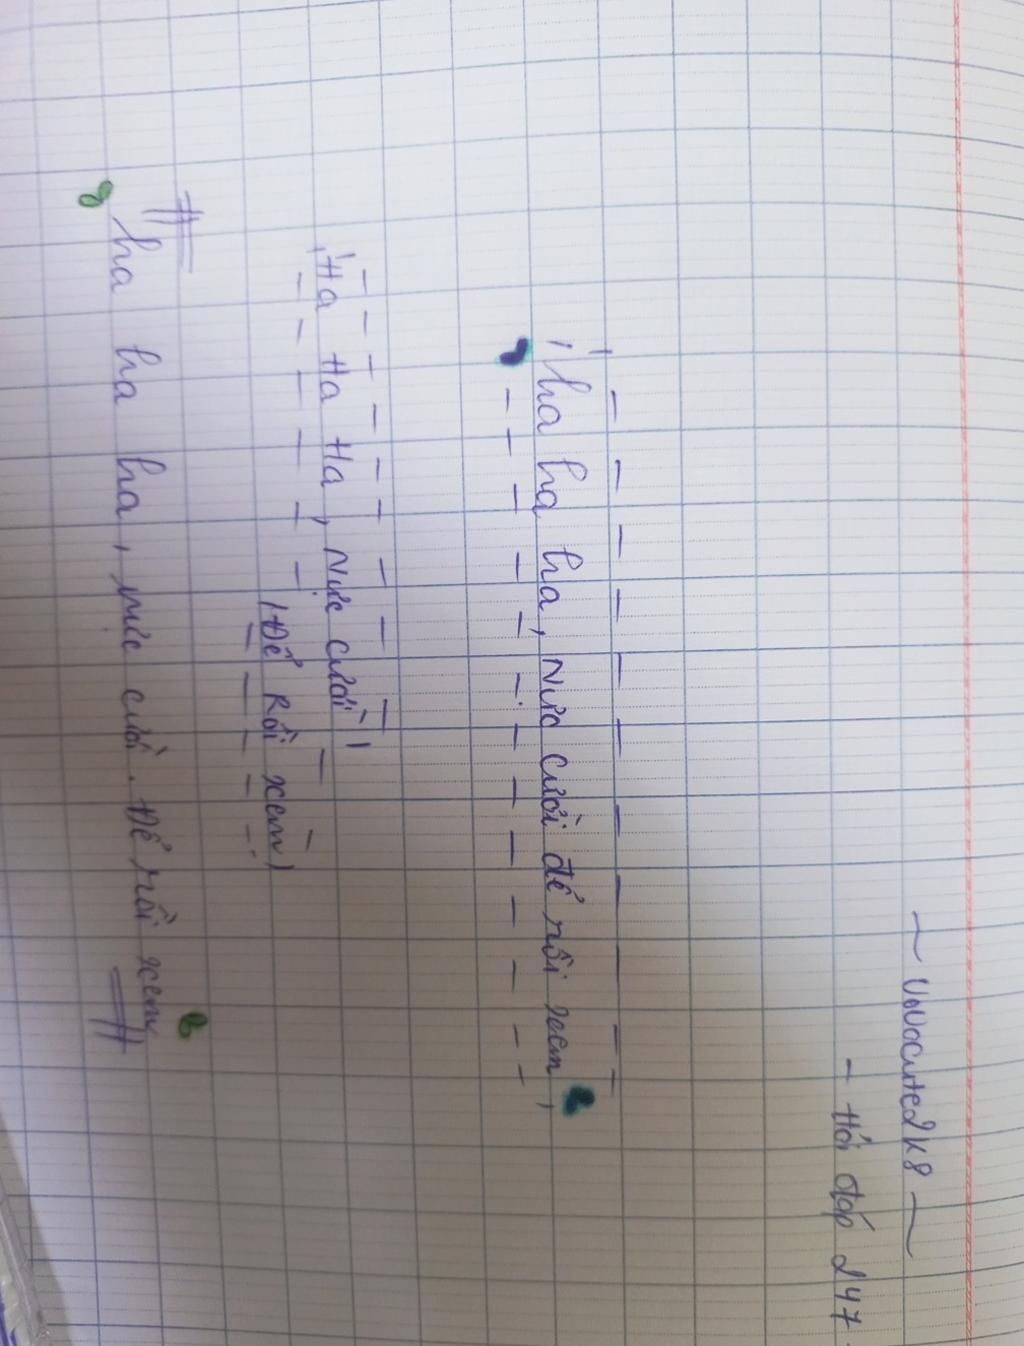 ~ UvUcute2k8 ~
- Hỏi đáp 247
ha ha ha, Nực cười để rồi xem,
Ha Ha Ha, Nực cười
(Để Rồi xem)
ha ha ha, nực cười. Để rồi xem,